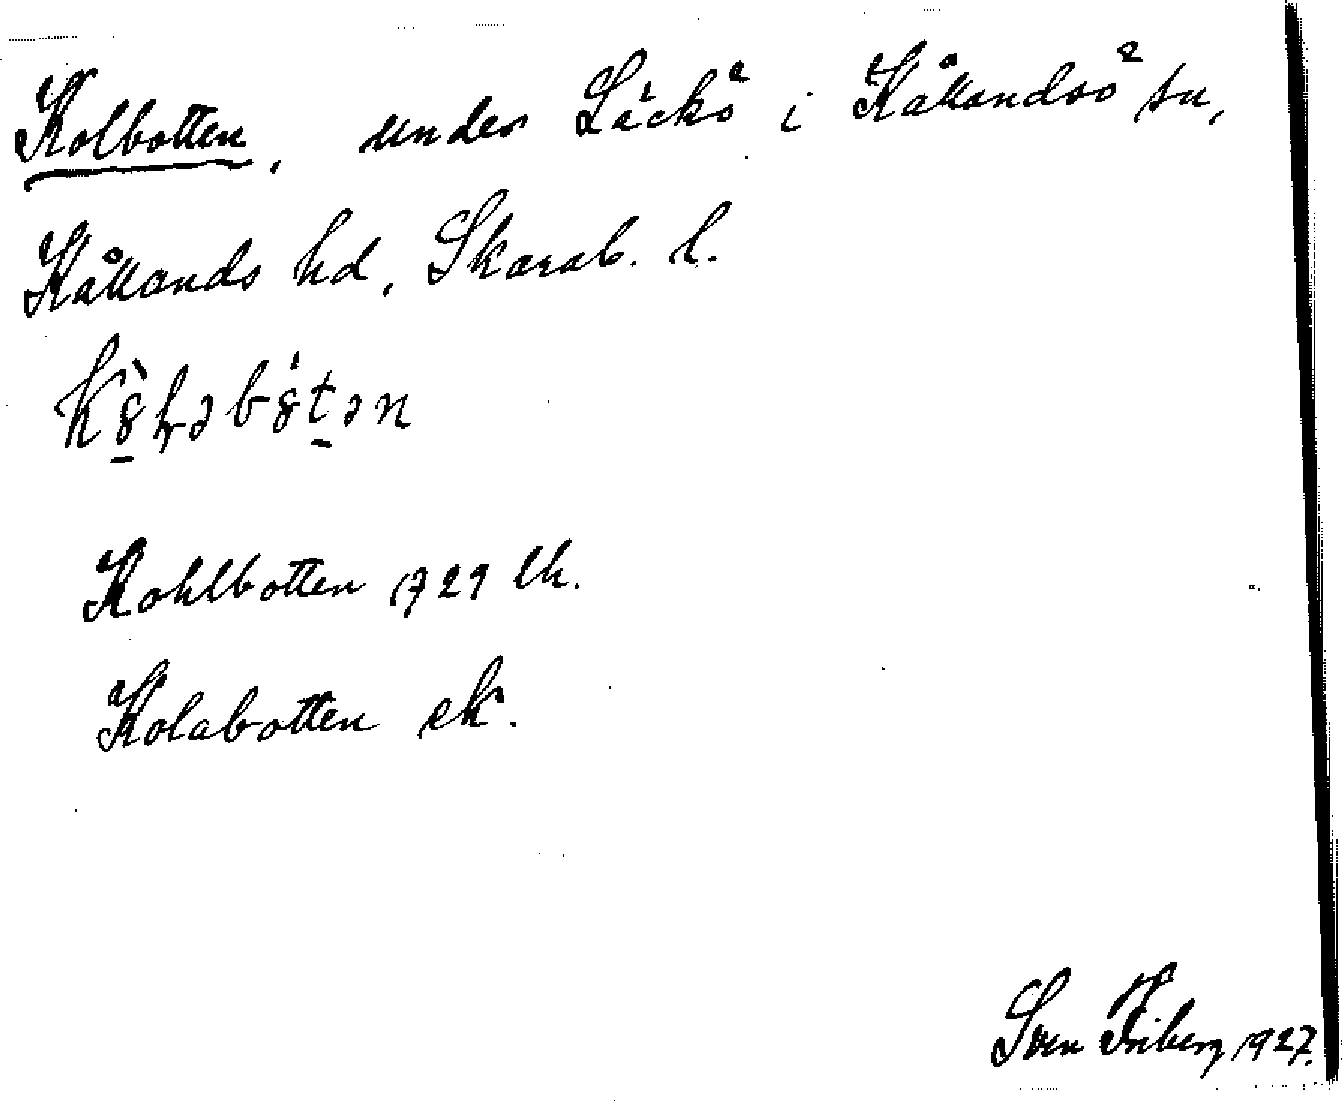 Kolbotten, under Läckö i Kållandsö sn,
Kållands hd, Skarab. l.
Kohlbotten 1729 lk.
Kolabotten ek.
Sven Friberg 1927.